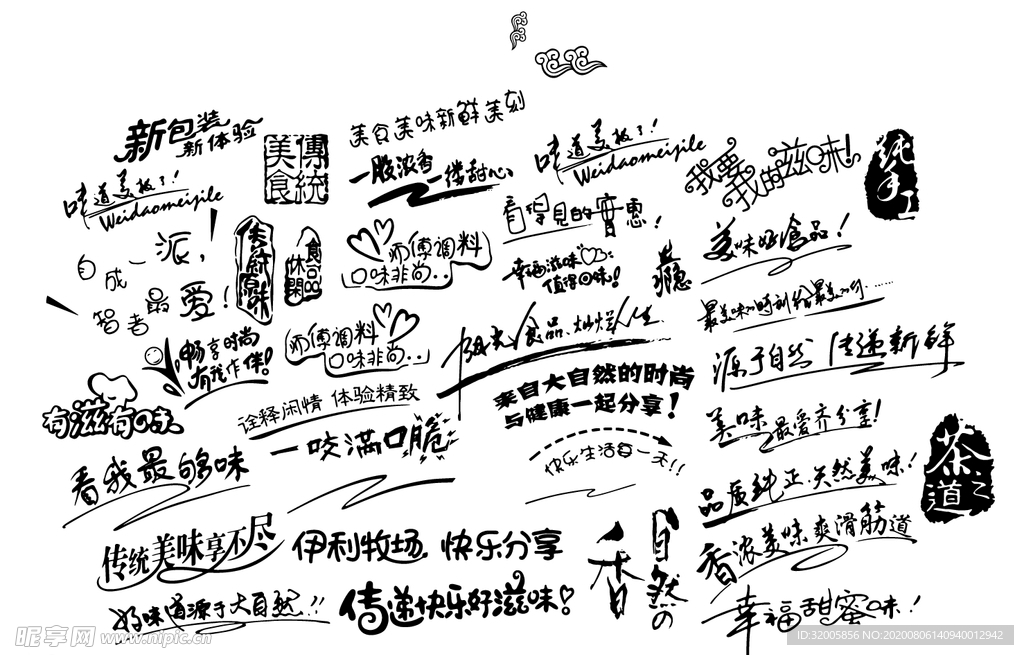 新包装
新体验
美食
傳統
美食美味新鲜美刻
一股浓香
一缕甜心
味道美极了!
Weidaomeijile
味道美极了!
Weidaomeijile
我要
我的滋味!
纯手工
自成一派,
智者最爱!
传统原味
食品
休閑
师傅调料
口味非尚..
看得见的實惠!
幸福滋味
值得回味!
瘾
美味好食品!
最美味的时刻给最美的你......
畅享时尚
有我作伴!
师傅调料
口味非尚..
阳光食品.灿烂人生
源于自然 传递新鲜
有滋有味
诠释闲情 体验精致
来自大自然的时尚
与健康一起分享!
美味最爱齐分享!
看我最够味
一咬满口脆
快乐生活每一天!!
品质纯正.天然美味!
茶之道
传统美味享不尽
伊利牧场.快乐分享
自然の香
香浓美味爽滑筋道
好味道源于大自然!!
传递快乐好滋味!
幸福甜蜜味!
昵享网 www.nipic.cn
ID:32005856 NO:20200806140940012942